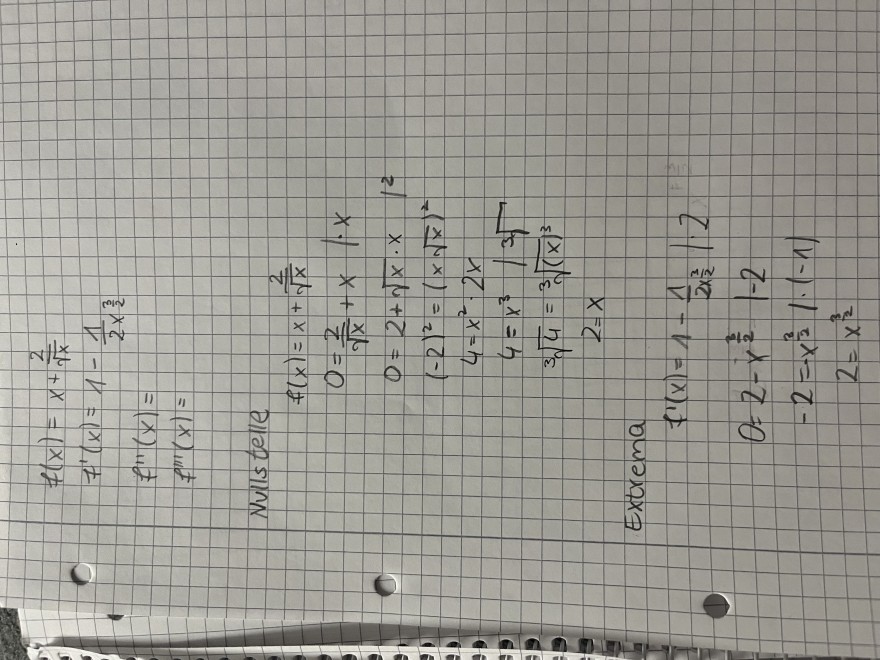 f(x) = x + 2/√x
f'(x) = 1 - 1/2x^(3/2)
f''(x) =
f'''(x) =
Nullstelle
f(x) = x + 2/√x
0 = 2/√x + x |·x
0 = 2 + √x · x |²
(-2)² = (x√x)²
4 = x² · 2x
4 = x³ | ³√
³√4 = ³√(x)³
2 = x
Extrema
f'(x) = 1 - 1/2x^(3/2) | · 2
0 = 2 - x^(3/2) |-2
-2 = -x^(3/2) | · (-1)
2 = x^(3/2)